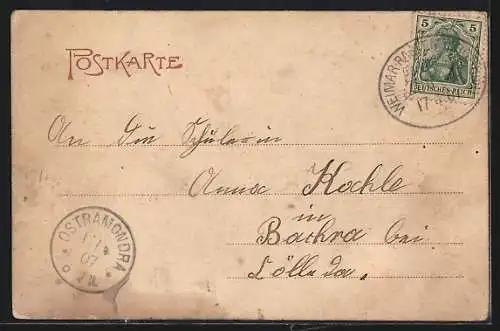 POSTKARTE
5
DEUTSCHES REICH
WEIMAR
17
An die Schülerin
Anna Kochle
in
Bachra bei
Cölleda.
OSTRAMONDRA
07